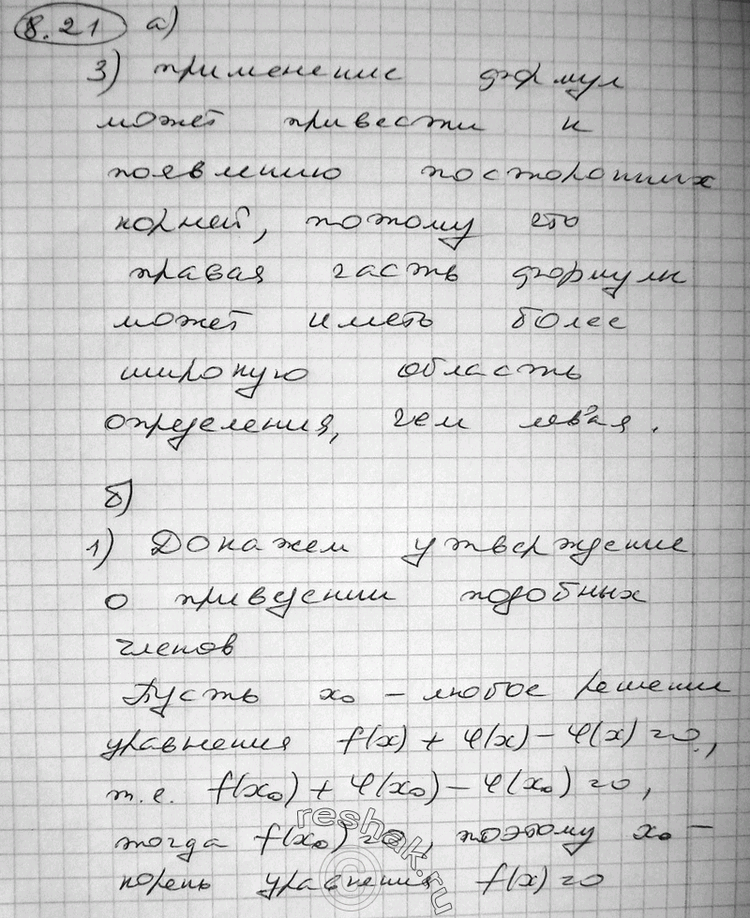 8.21 а)
3) применение формул
может привести к
появлению посторонних
корней, потому что
правая часть формулы
может иметь более
широкую область
определения, чем левая.
б)
1) Докажем утверждение
о приведении подобных
членов
Пусть x₀ – любое решение
уравнения f(x) + φ(x) – φ(x) = 0,
т.е. f(x₀) + φ(x₀) – φ(x₀) = 0,
тогда f(x₀) = 0, поэтому x₀ –
корень уравнения f(x) = 0
reshak.ru